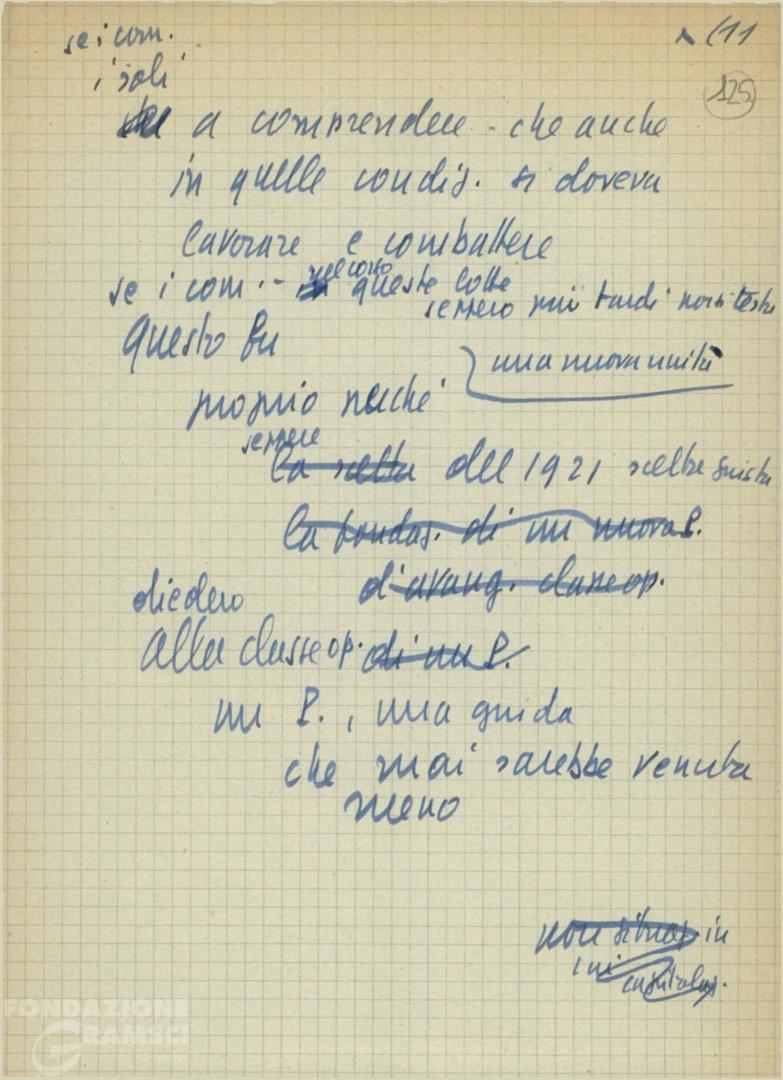 se i com. 11
i soli 125
a comprendere - che anche
in quelle condiz. si doveva
lavorare e combattere
nel corso
se i com. - queste lotte
seppero più tardi
Questo fu una nuova unità
proprio perché
seppero
la scelta del 1921 scelta giusta
la fondaz. di un nuovo P.
d'avang. classe op.
diedero
alla classe op. di un P.
un P., una guida
che mai sarebbe venuta
meno
non in
FONDAZIONE
GRAMSCI